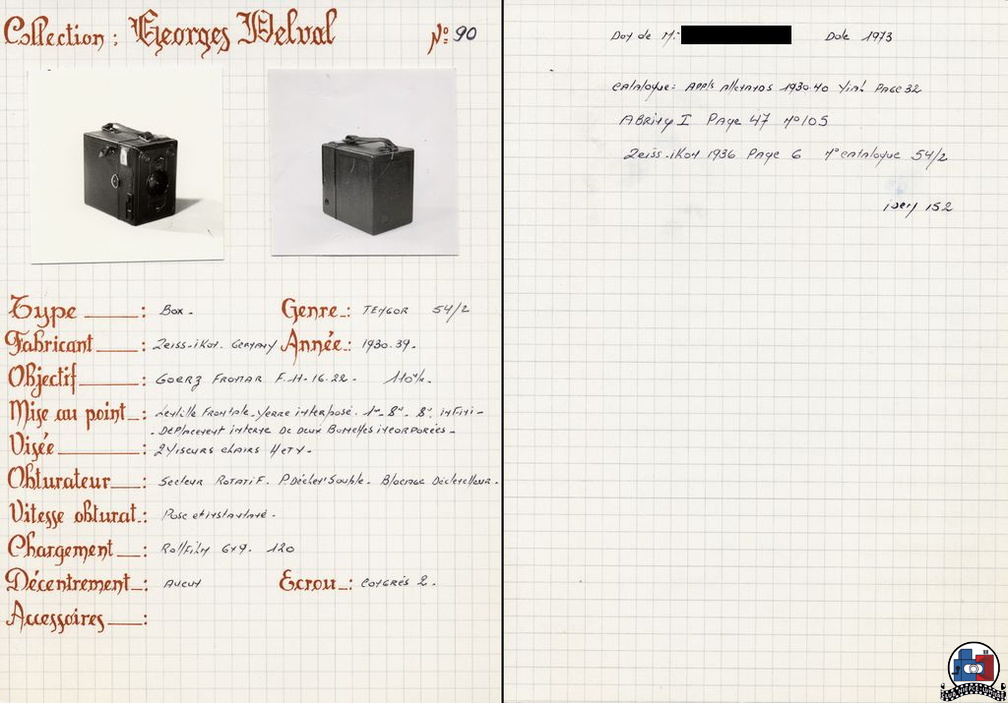 Collection : Georges Delval Nº 90
Type : Box. Genre : TENGOR 54/2
Fabricant : Zeiss-iKon. Germany Année : 1930.39.
Objectif : GOERZ FRONAR F.11-16-22. 110 m/m.
Mise au point : Lentille Frontale. Verre interposé. 1m_ 8m_ 8m. iNFiNi_
. DéPlacement interne De Deux BoNettes iNcorPorées_
Visée : 2 Viseurs clairs
Obturateur : Secteur Rotatif. P.Déclen Souple. Blocage Déclencheur.
Vitesse obturat. : Pose et instantané.
Chargement : Rollfilm 6x9. 120
Décentrement : Aucun Ecrou : CONGRÈS 2.
Accessoires :
Don de M. Date 1973
Catalogue : APPts Allemands 1930.40 Page 32
ABRiNG I Page 47 nº105
Zeiss-iKon 1936 Page 6 nº catalogue 54/2
152